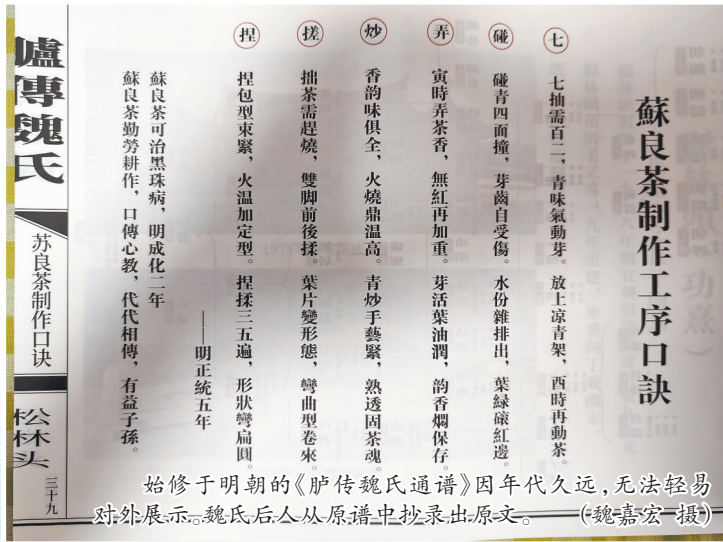 蘇良茶制作工序口訣
七 七抽需百二，青味氣動芽。放上凉青架，西時再動茶。
碰 碰青四面撞，芽齒自受傷。水份雜排出，葉緑磙紅邊。
弄 寅時弄茶香，無紅再加重。芽活葉油潤，韵香燜保存。
炒 香韵味俱全，火燒鼎温高。青炒手藝緊，熟透固茶魂。
搓 拙茶需趕燒，雙脚前後揉。葉片變形態，彎曲型卷來。
捏 捏包型束緊，火温加定型。捏揉三五遍，形狀彎扁圓。
——明正統五年
蘇良茶可治黑珠病，明成化二年
蘇良茶勤勞耕作，口傳心教，代代相傳，有益子孫。
鱸傳魏氏
苏良茶制作口诀
松林头
三十九
始修于明朝的《胪传魏氏通谱》因年代久远，无法轻易
对外展示。魏氏后人从原谱中抄录出原文。 （魏嘉宏 摄）